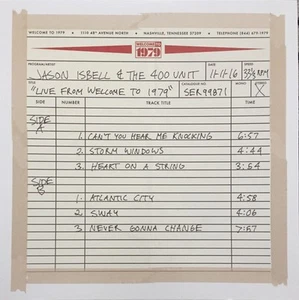 WELCOME TO 1979 • 1110 48TH AVENUE NORTH • NASHVILLE, TENNESSEE 37209 • TELEPHONE (866) 679.1979
WELCOME TO
1979
PROGRAM/ARTIST
JASON ISBELL & THE 400 UNIT
11-11-16
33⅓ RPM
TITLE
"LIVE FROM WELCOME TO 1979"
SER99871
X
SIDE NUMBER TRACK TITLE TIME
SIDE A
1. CAN'T YOU HEAR ME KNOCKING 6:57
2. STORM WINDOWS 4:44
3. HEART ON A STRING 3:54
SIDE B
1. ATLANTIC CITY 4:58
2. SWAY 4:06
3. NEVER GONNA CHANGE 7:57